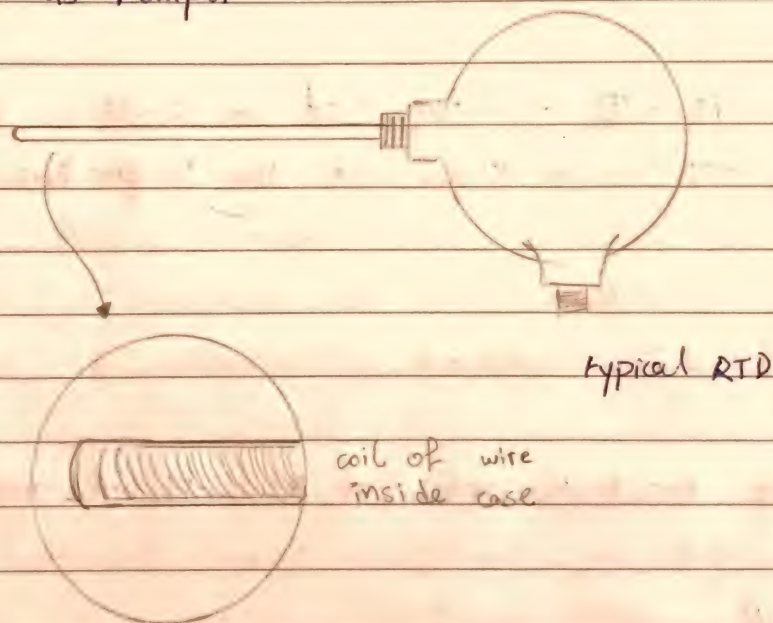 as temp.
typical RTD
coil of wire
inside case